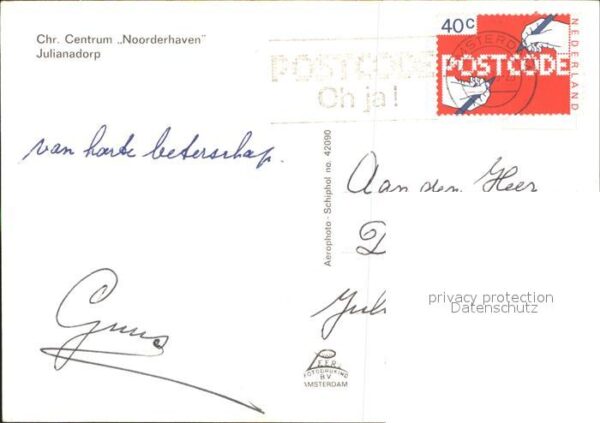 Chr. Centrum „Noorderhaven"
Julianadorp
POSTCODE
Oh ja!
40c
NEDERLAND
POSTCODE
van harte beterschap.
Aerophoto - Schiphol no. 42090
Aan den Heer
D
Jul
privacy protection
Datenschutz
Guus
FOTODRUKIND
B.V.
AMSTERDAM